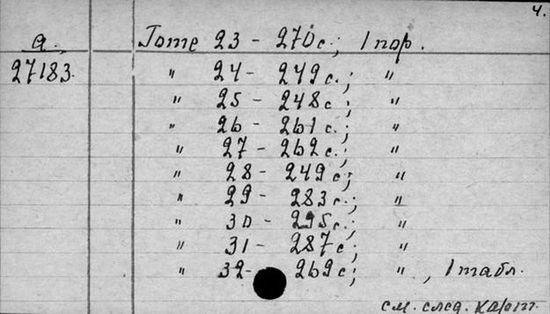 4.
а. Tome 23 - 270 с.; 1 пор.
27183. " 24 - 249 с.; "
" 25 - 248 с.; "
" 26 - 261 с.; "
" 27 - 262 с.; "
" 28 - 249 с.; "
" 29 - 283 с.; "
" 30 - 295 с.; "
" 31 - 287 с.; "
" 32 - 269 с.; ", 1 табл.
см. след. карт.